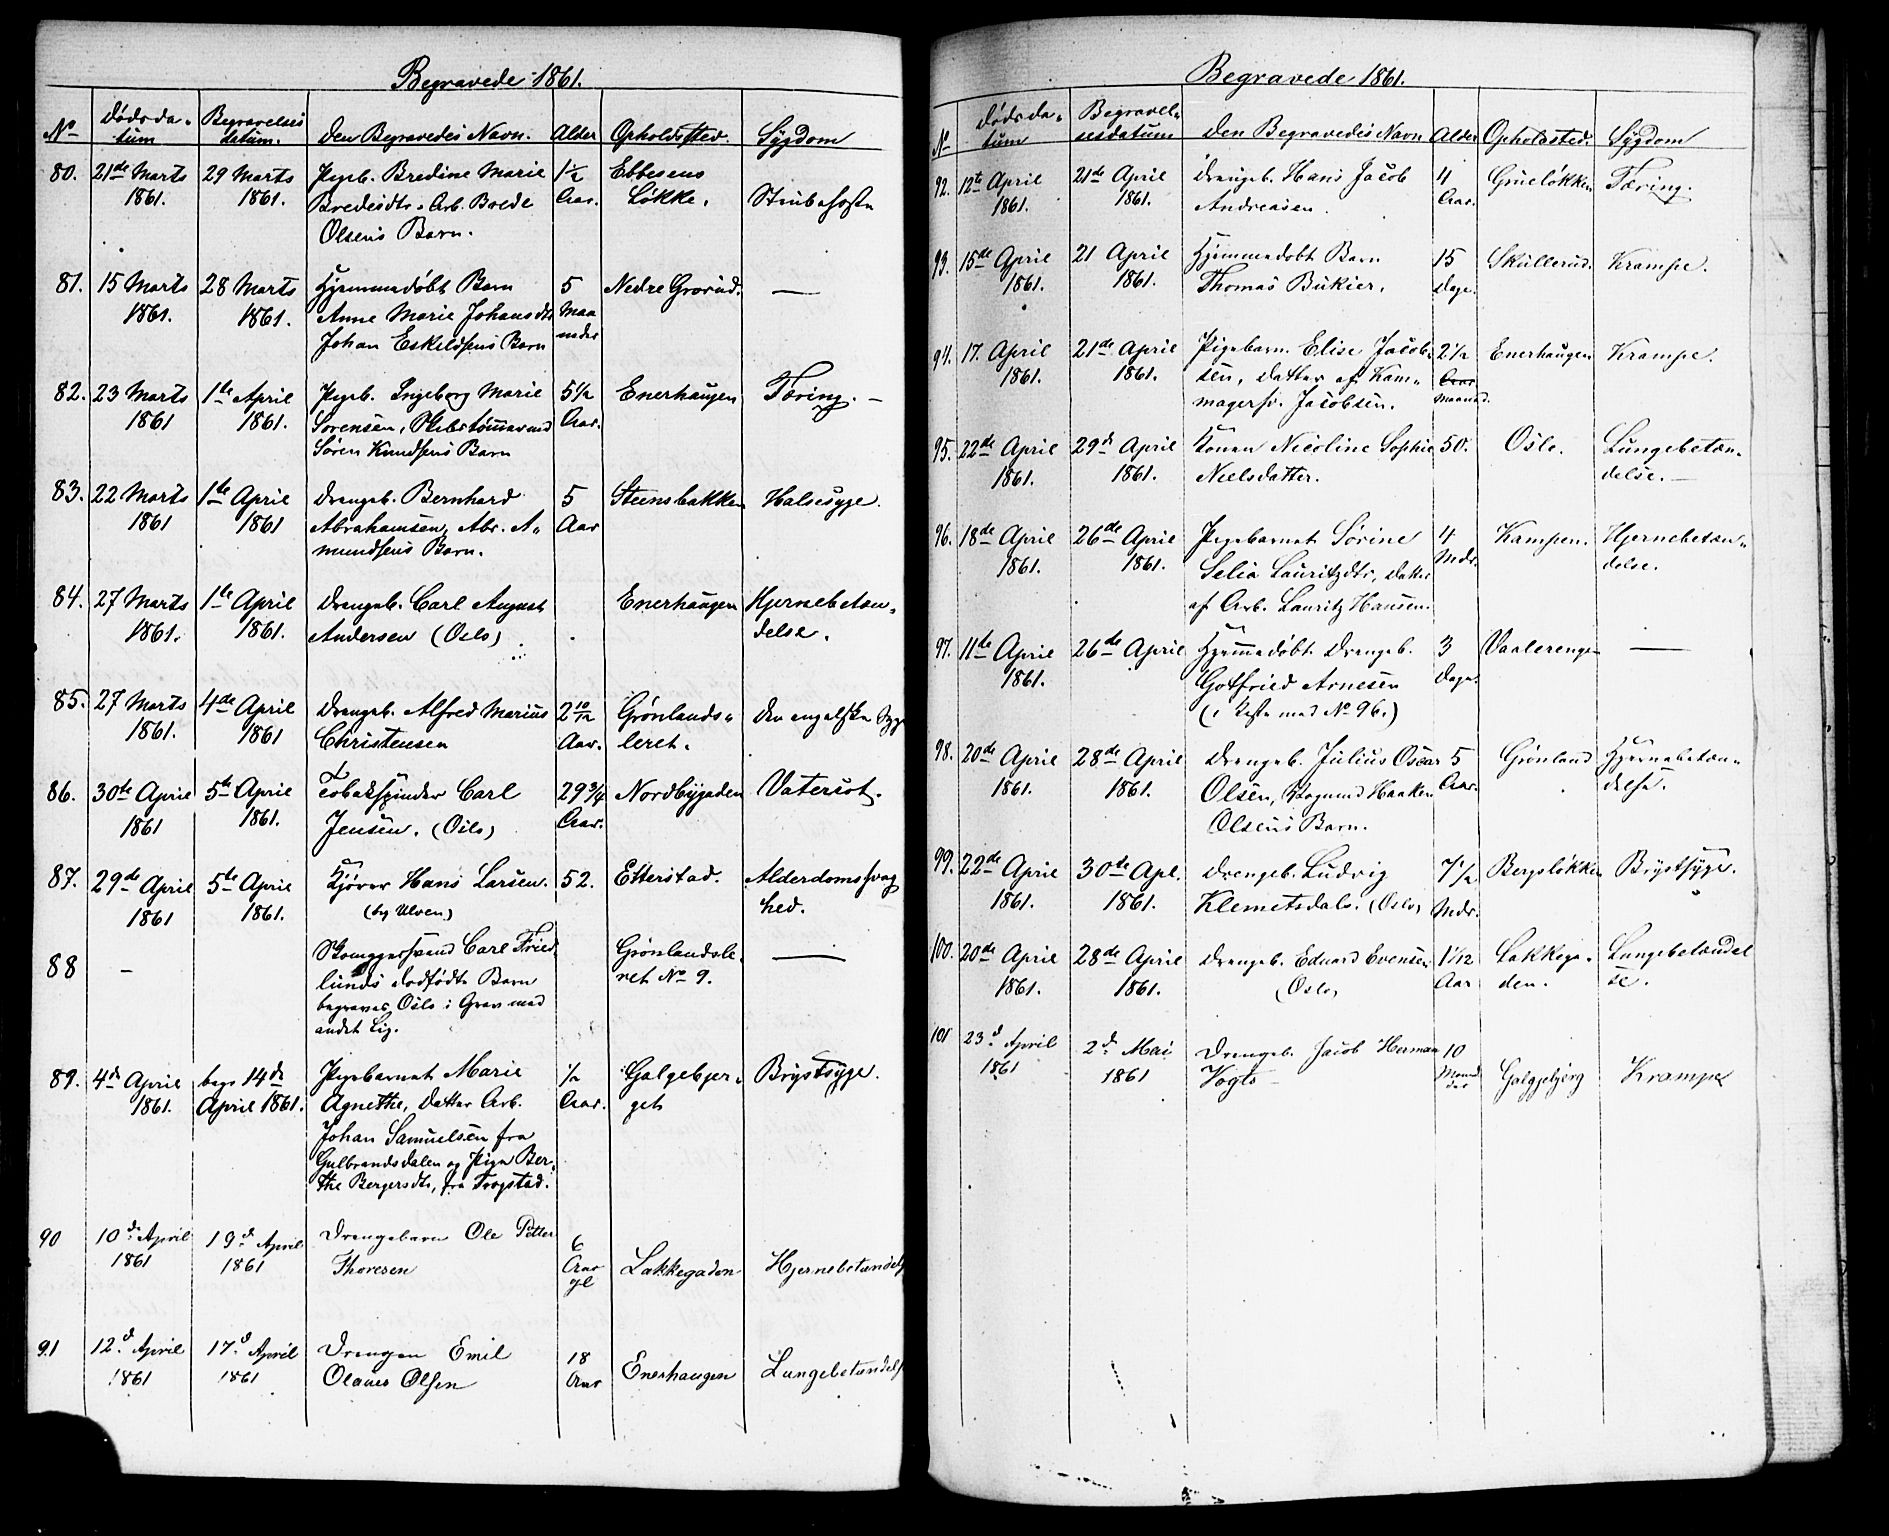 Begravede 1861.
No Dødsda-tum Begravelsesdatum. Den Begravedes Navn. Alder Opholdssted. Sygdom
80. 21de Marts 1861. 29 Marts 1861. Pigeb. Bredine Marie 1½ Aar. Ebbesens Løkke. Strubehoste
Bredesdtr. Arb. Brede
Olsens Barn.
81. 15 Marts 1861. 28 Marts 1861. Hjemmedøbt Barn 5 Maaneder Nedre Grorud. —
Anne Marie Johansdtr
Johan Eskildsens Barn
82. 23 Marts 1861 1ste April 1861. Pigeb. Ingeborg Marie 5½ Aar. Enerhaugen Tæring. —
Sorensen, Skibstømmermd
Søren Knudsens Barn
83. 22 Marts 1861 1ste April 1861 Drengeb. Bernhard 5 Aar Steensbakken Halssyge.
Abrahamsen, Abr. A-
mundsens Barn.
84. 27 Marts 1861. 1ste April 1861. Drengeb. Carl August Enerhaugen Hjernebetæn-
Andersen (Oslo) delse.
85. 27 Marts 1861. 4de April 1861 Drengeb. Alfred Marius 2 10/12 Aar. Grønlands- Den engelske Syge
Christensen leret.
86. 30te April 1861 5te April 1861. Tobakspinder Carl 29 3/4 Aar. Nordbygaden Vatersot.
Jensen. (Oslo)
87. 29de April 1861 5te April 1861. Kjører Hans Larsen. 52. Etterstad. Alderdomssvag
(by Ulven) hed.
88 — Carl Fried Grønlandsle- —
lunds dødfødte Barn ret No 9.
begraves Oslo i Grav med
andet Lig.
89. 4de April 1861. begr 14de April 1861. Pigebarnet Marie ½ Aar. Galgebjer- Brystsyge.
Agnethe, Datter Arb. get
Johan Samuelsen fra
Gulbrandsdalen og Pige Ber-
the Bergersdtr, fra Trogstad.
90 10de April 1861 19de April 1861 Drengebarn Ole Petter 6 Aar gl Lakkegaden Hjernebetændels
Thoresen
91 12d April 1861 17d April 1861 Drengen Emil 18 Aar Enerhaugen Lungebetændels
Olaves Olsen
Begravede 1861.
No Dødsda-tum Begravel-sesdatum Den Begravedes Navn Alder Opholdssted. Sygdom
92. 12te April 1861. 21de April 1861. Drengeb. Hans Jacob 4 Aar. Grueløkken Tæring.
Andreasen.
93. 15de April 1861. 21 April 1861. Hjemmedøbt Barn 15 Dage. Skullerud. Krampe.
Thomas Bukier.
94. 17. April 1861. 21de April 1861. Pigebarn. Elise Jacob- 2½ Aar Maaned. Enerhaugen Krampe.
sen, Datter af Kam-
magersv. Jacobsen.
95. 22de April 1861. 29d April 1861. Konen Nicoline Sophie 50. Oslo. Lungebetæn-
Nielsdatter. delse. —
96. 18de April 1861. 26de April 1861. Pigebarnet Sørine 4 Mdr. Kampen. Hjernebetæn-
Selia Lauritzdtr, Datter delse.
af Arb. Lauritz Hansen.
97. 11te April 1861. 26de April Hjemmedøbt Drengeb. 3 Dage. Vaalerenge —
Gotfried Arnesen
(i Kiste med No 96.)
98. 20de April 1861. 28de April 1861. Drengeb. Julius Oscar 5 Aar. Grønland Hjernebetæn-
Olsen, Vognmd Haaken delse.
Olsens Barn.
99. 22de April 1861. 30te Apl. 1861. Drengeb. Ludvig 7½ Mdr. Bergsløkken Brystsyge.
Klemetsdal. (Oslo)
100. 20de April 1861. 28de April 1861. Drengeb. Eduard Evensen 1 1/12 Aar Lakkega- Lungebetændel
(Oslo) den. se.
101 23d April 1861 2d Mai 1861 Drengeb. Jacob Herman 10 Maaneder Galgebjerg Krampe
Vogts —